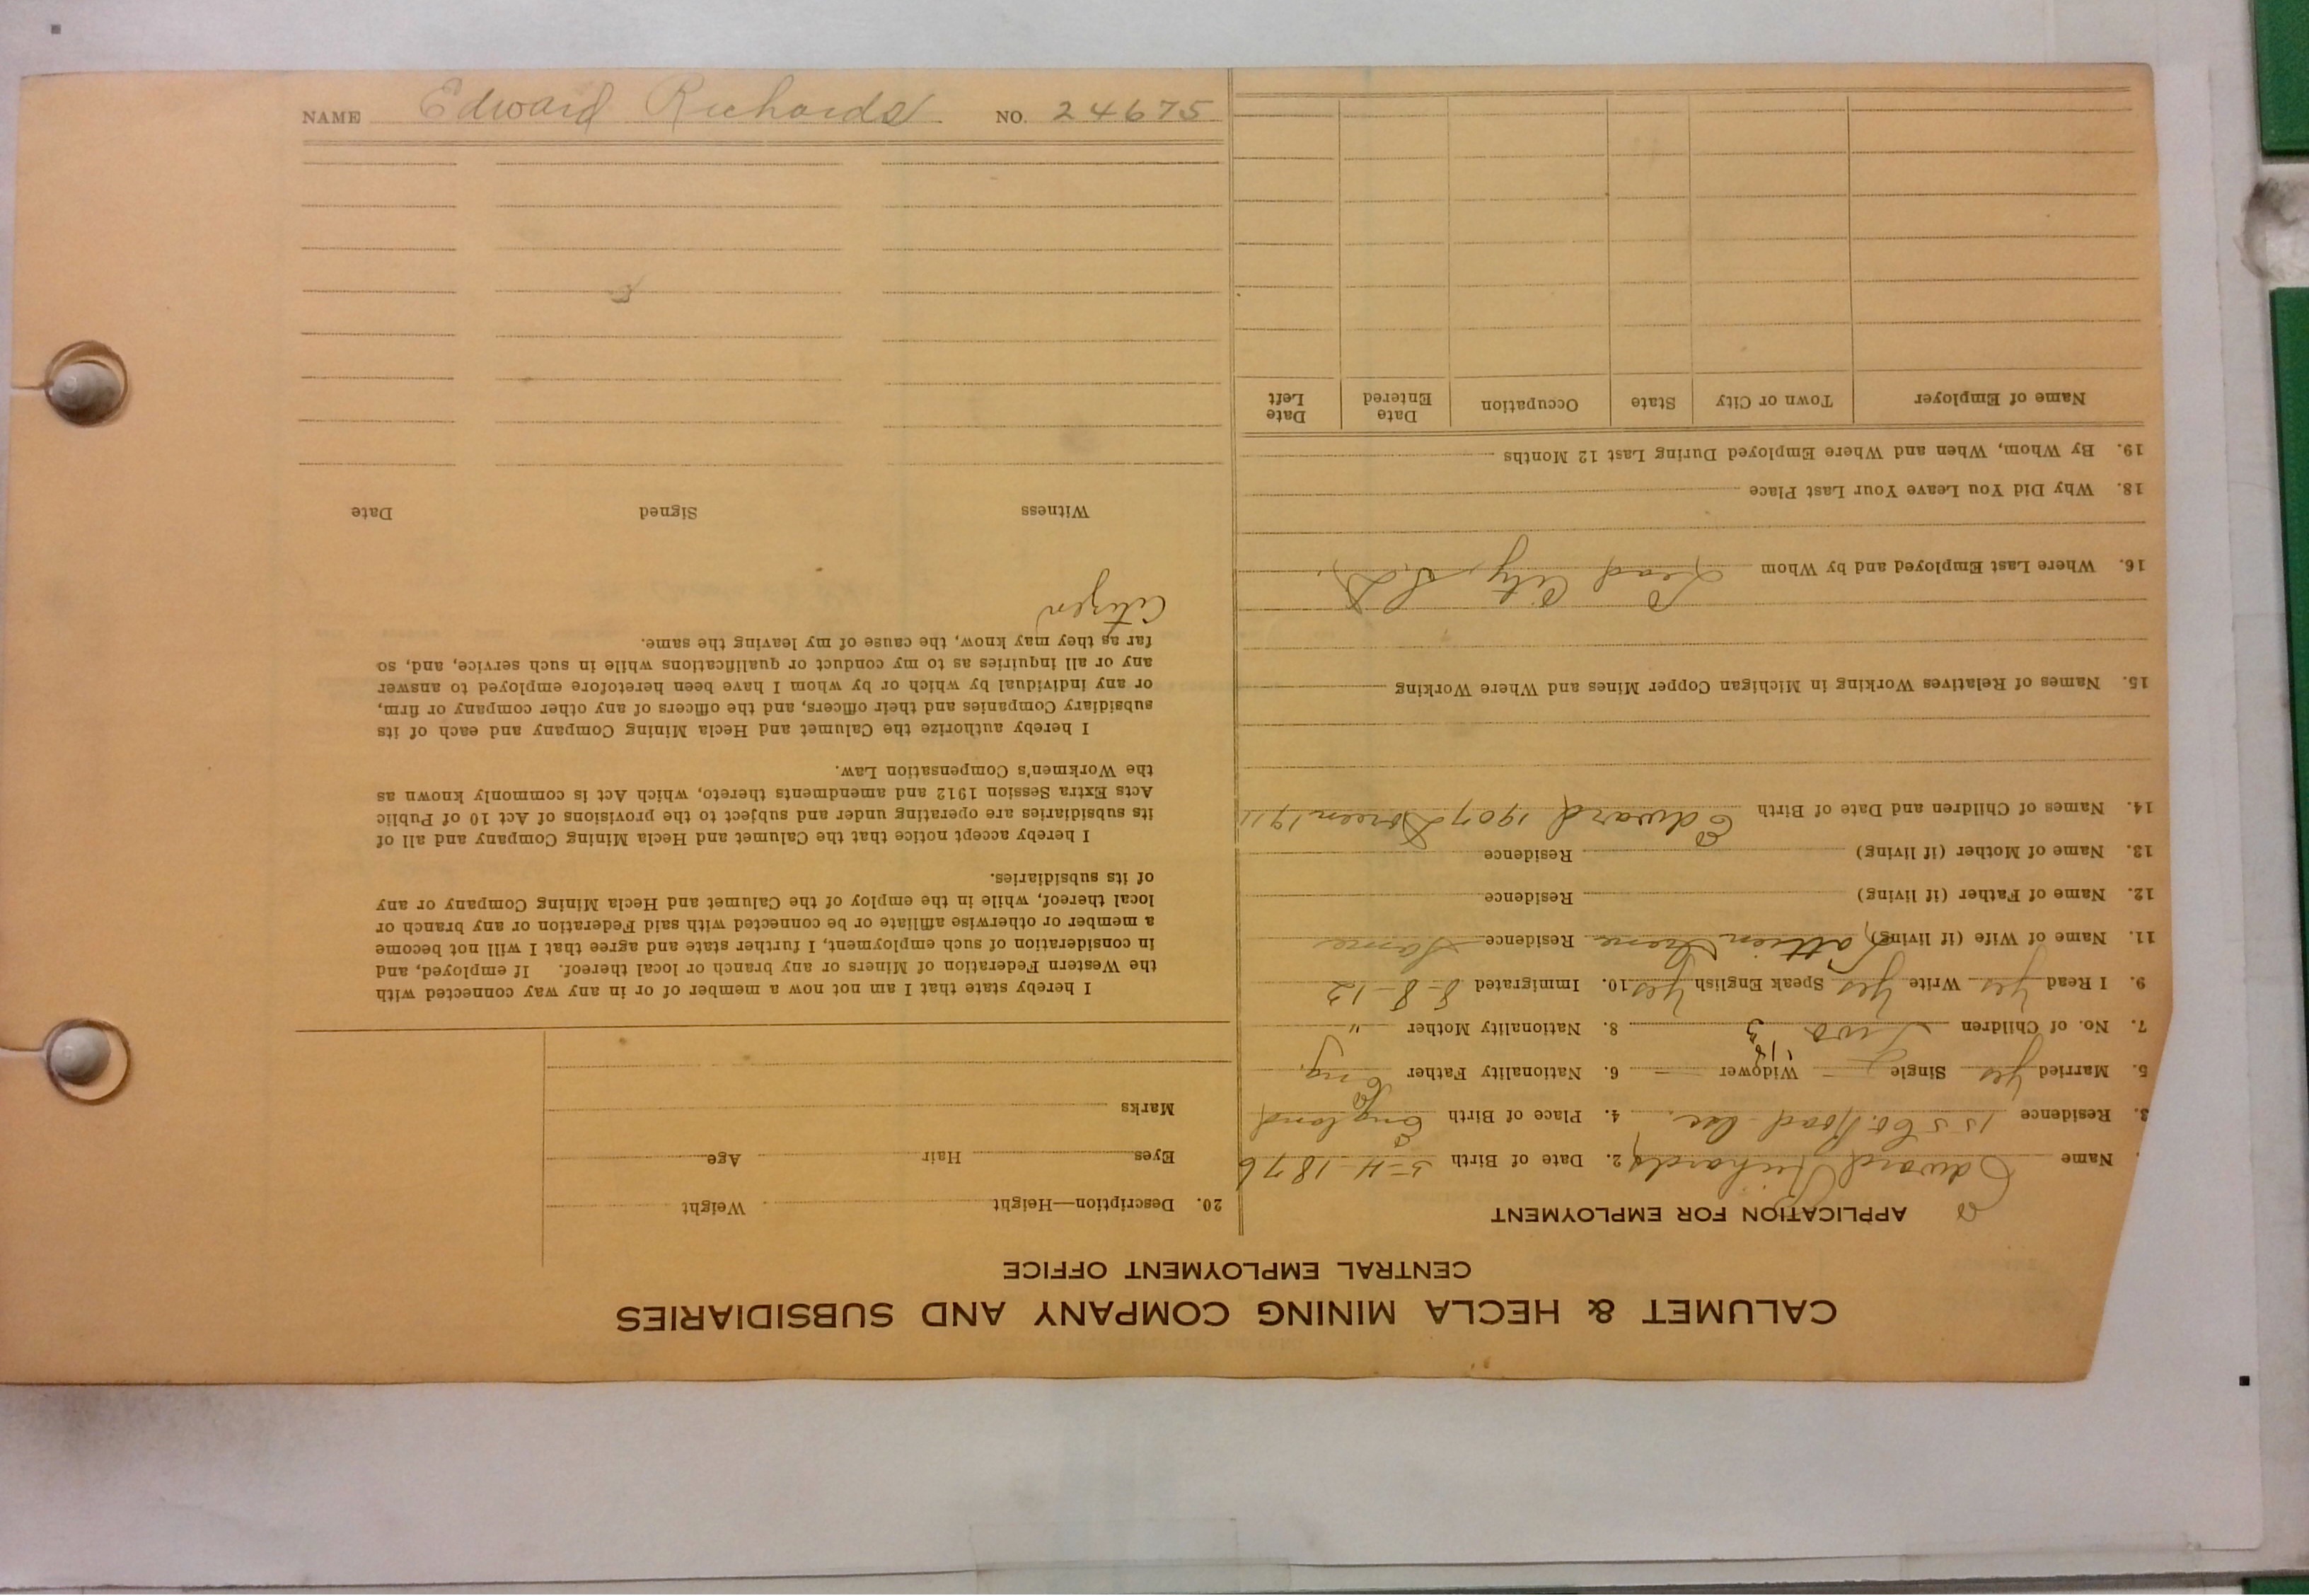 NAME Edward Richards NO. 24675
CALUMET & HECLA MINING COMPANY AND SUBSIDIARIES
CENTRAL EMPLOYMENT OFFICE
APPLICATION FOR EMPLOYMENT
Name Edward Richards 2. Date of Birth 5-4-1876
3. Residence Road 4. Place of Birth England
5. Married Yes Single — Widower — 6. Nationality Father Eng.
7. No. of Children Two 3 8. Nationality Mother "
9. I Read Yes Write Yes Speak English Yes 10. Immigrated 8-8-12
11. Name of Wife (if living) Residence Same
12. Name of Father (if living) Residence
13. Name of Mother (if living) Residence
14. Names of Children and Date of Birth Edward 1907 Doreen 1911
15. Names of Relatives Working in Michigan Copper Mines and Where Working
16. Where Last Employed and by Whom Lead City, S.D.
18. Why Did You Leave Your Last Place
19. By Whom, When and Where Employed During Last 12 Months
Name of Employer Town or City State Occupation Date Entered Date Left
20. Description—Height Weight
Eyes Hair Age
Marks
I hereby state that I am not now a member of or in any way connected with
the Western Federation of Miners or any branch or local thereof. If employed, and
in consideration of such employment, I further state and agree that I will not become
a member or otherwise affiliate or be connected with said Federation or any branch or
local thereof, while in the employ of the Calumet and Hecla Mining Company or any
of its subsidiaries.
I hereby accept notice that the Calumet and Hecla Mining Company and all of
its subsidiaries are operating under and subject to the provisions of Act 10 of Public
Acts Extra Session 1912 and amendments thereto, which Act is commonly known as
the Workmen's Compensation Law.
I hereby authorize the Calumet and Hecla Mining Company and each of its
subsidiary Companies and their officers, and the officers of any other company or firm,
or any individual by which or by whom I have been heretofore employed to answer
any or all inquiries as to my conduct or qualifications while in such service, and, so
far as they may know, the cause of my leaving the same.
Citizen
Witness Signed Date